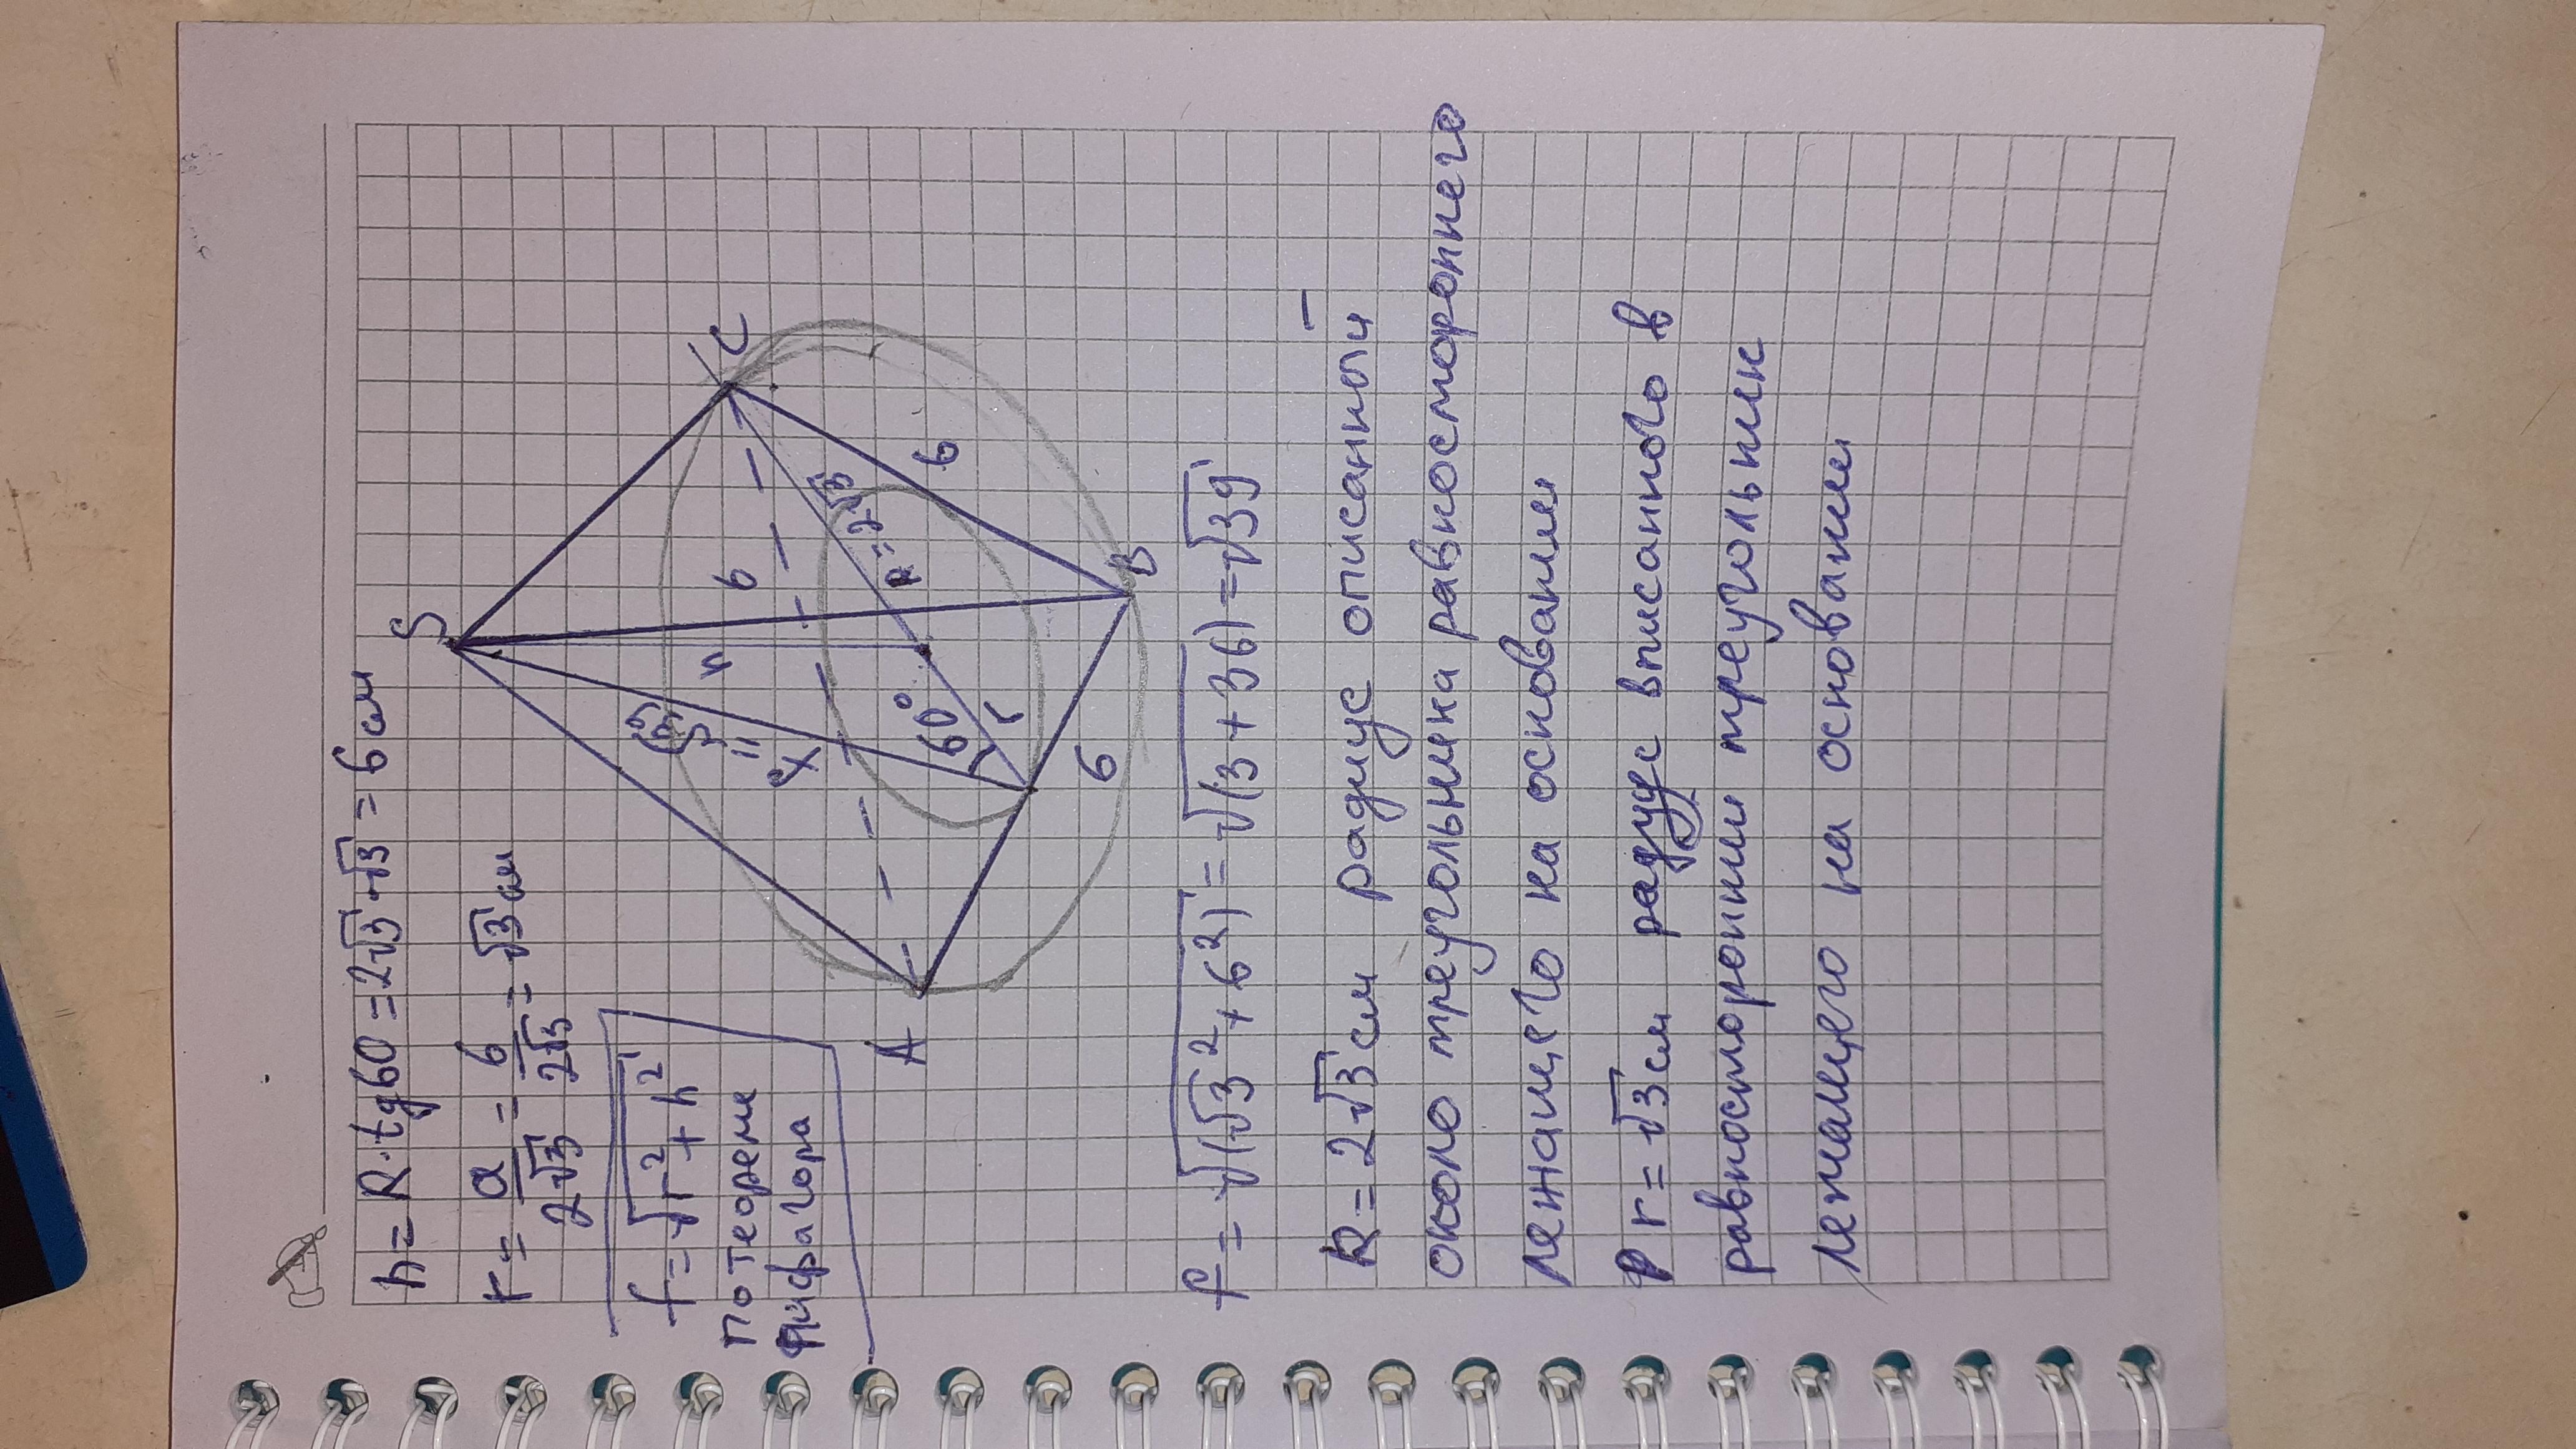 h = R·tg60 = 2√3·√3 = 6 см
r = a/2√3 = 6/2√3 = √3 см
f = √r² + h²
по теореме
Пифагора
S
A
B
C
h
6
6
6
60°
r
R = 2√3
f = √(√3² + 6²) = √(3 + 36) = √39
R = 2√3 см радиус описанной –
около треугольника равностороннего
лежащего на основании
r = √3 см радиус вписанного в
равностороннии треугольник
лежащего на основании